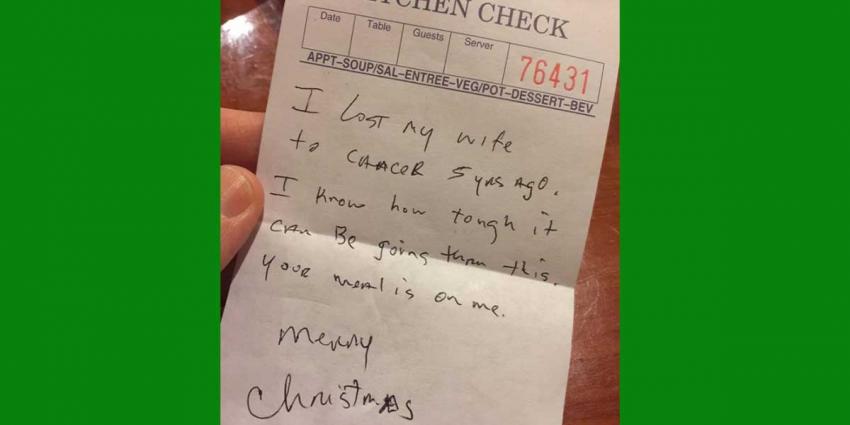 TCHEN CHECK
Date Table Guests Server 76431
APPT-SOUP/SAL-ENTREE-VEG/POT-DESSERT-BEV
I Lost my wife
to CANCOR 5 yrs AgO.
I know how tough it
CAN Be going thru this.
your meal is on me.
Merry
Christmas